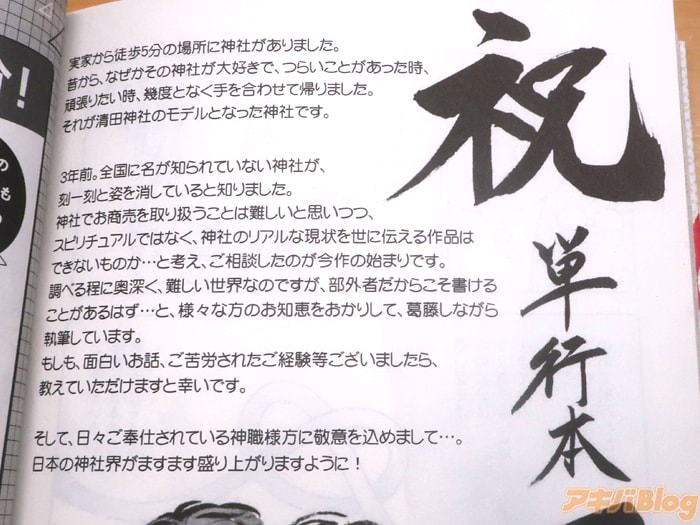 祝
単行本
実家から徒歩5分の場所に神社がありました。
昔から、なぜかその神社が大好きで、つらいことがあった時、
頑張りたい時、幾度となく手を合わせて帰りました。
それが清田神社のモデルとなった神社です。
3年前。全国に名が知られていない神社が、
刻一刻と姿を消していると知りました。
神社でお商売を取り扱うことは難しいと思いつつ、
スピリチュアルではなく、神社のリアルな現状を世に伝える作品は
できないものか…と考え、ご相談したのが今作の始まりです。
調べる程に奥深く、難しい世界なのですが、部外者だからこそ書ける
ことがあるはず…と、様々な方のお知恵をおかりして、葛藤しながら
執筆しています。
もしも、面白いお話、ご苦労されたご経験等ございましたら、
教えていただけますと幸いです。
そして、日々ご奉仕されている神職様方に敬意を込めまして…。
日本の神社界がますます盛り上がりますように！
！
の
も
アキバBlog